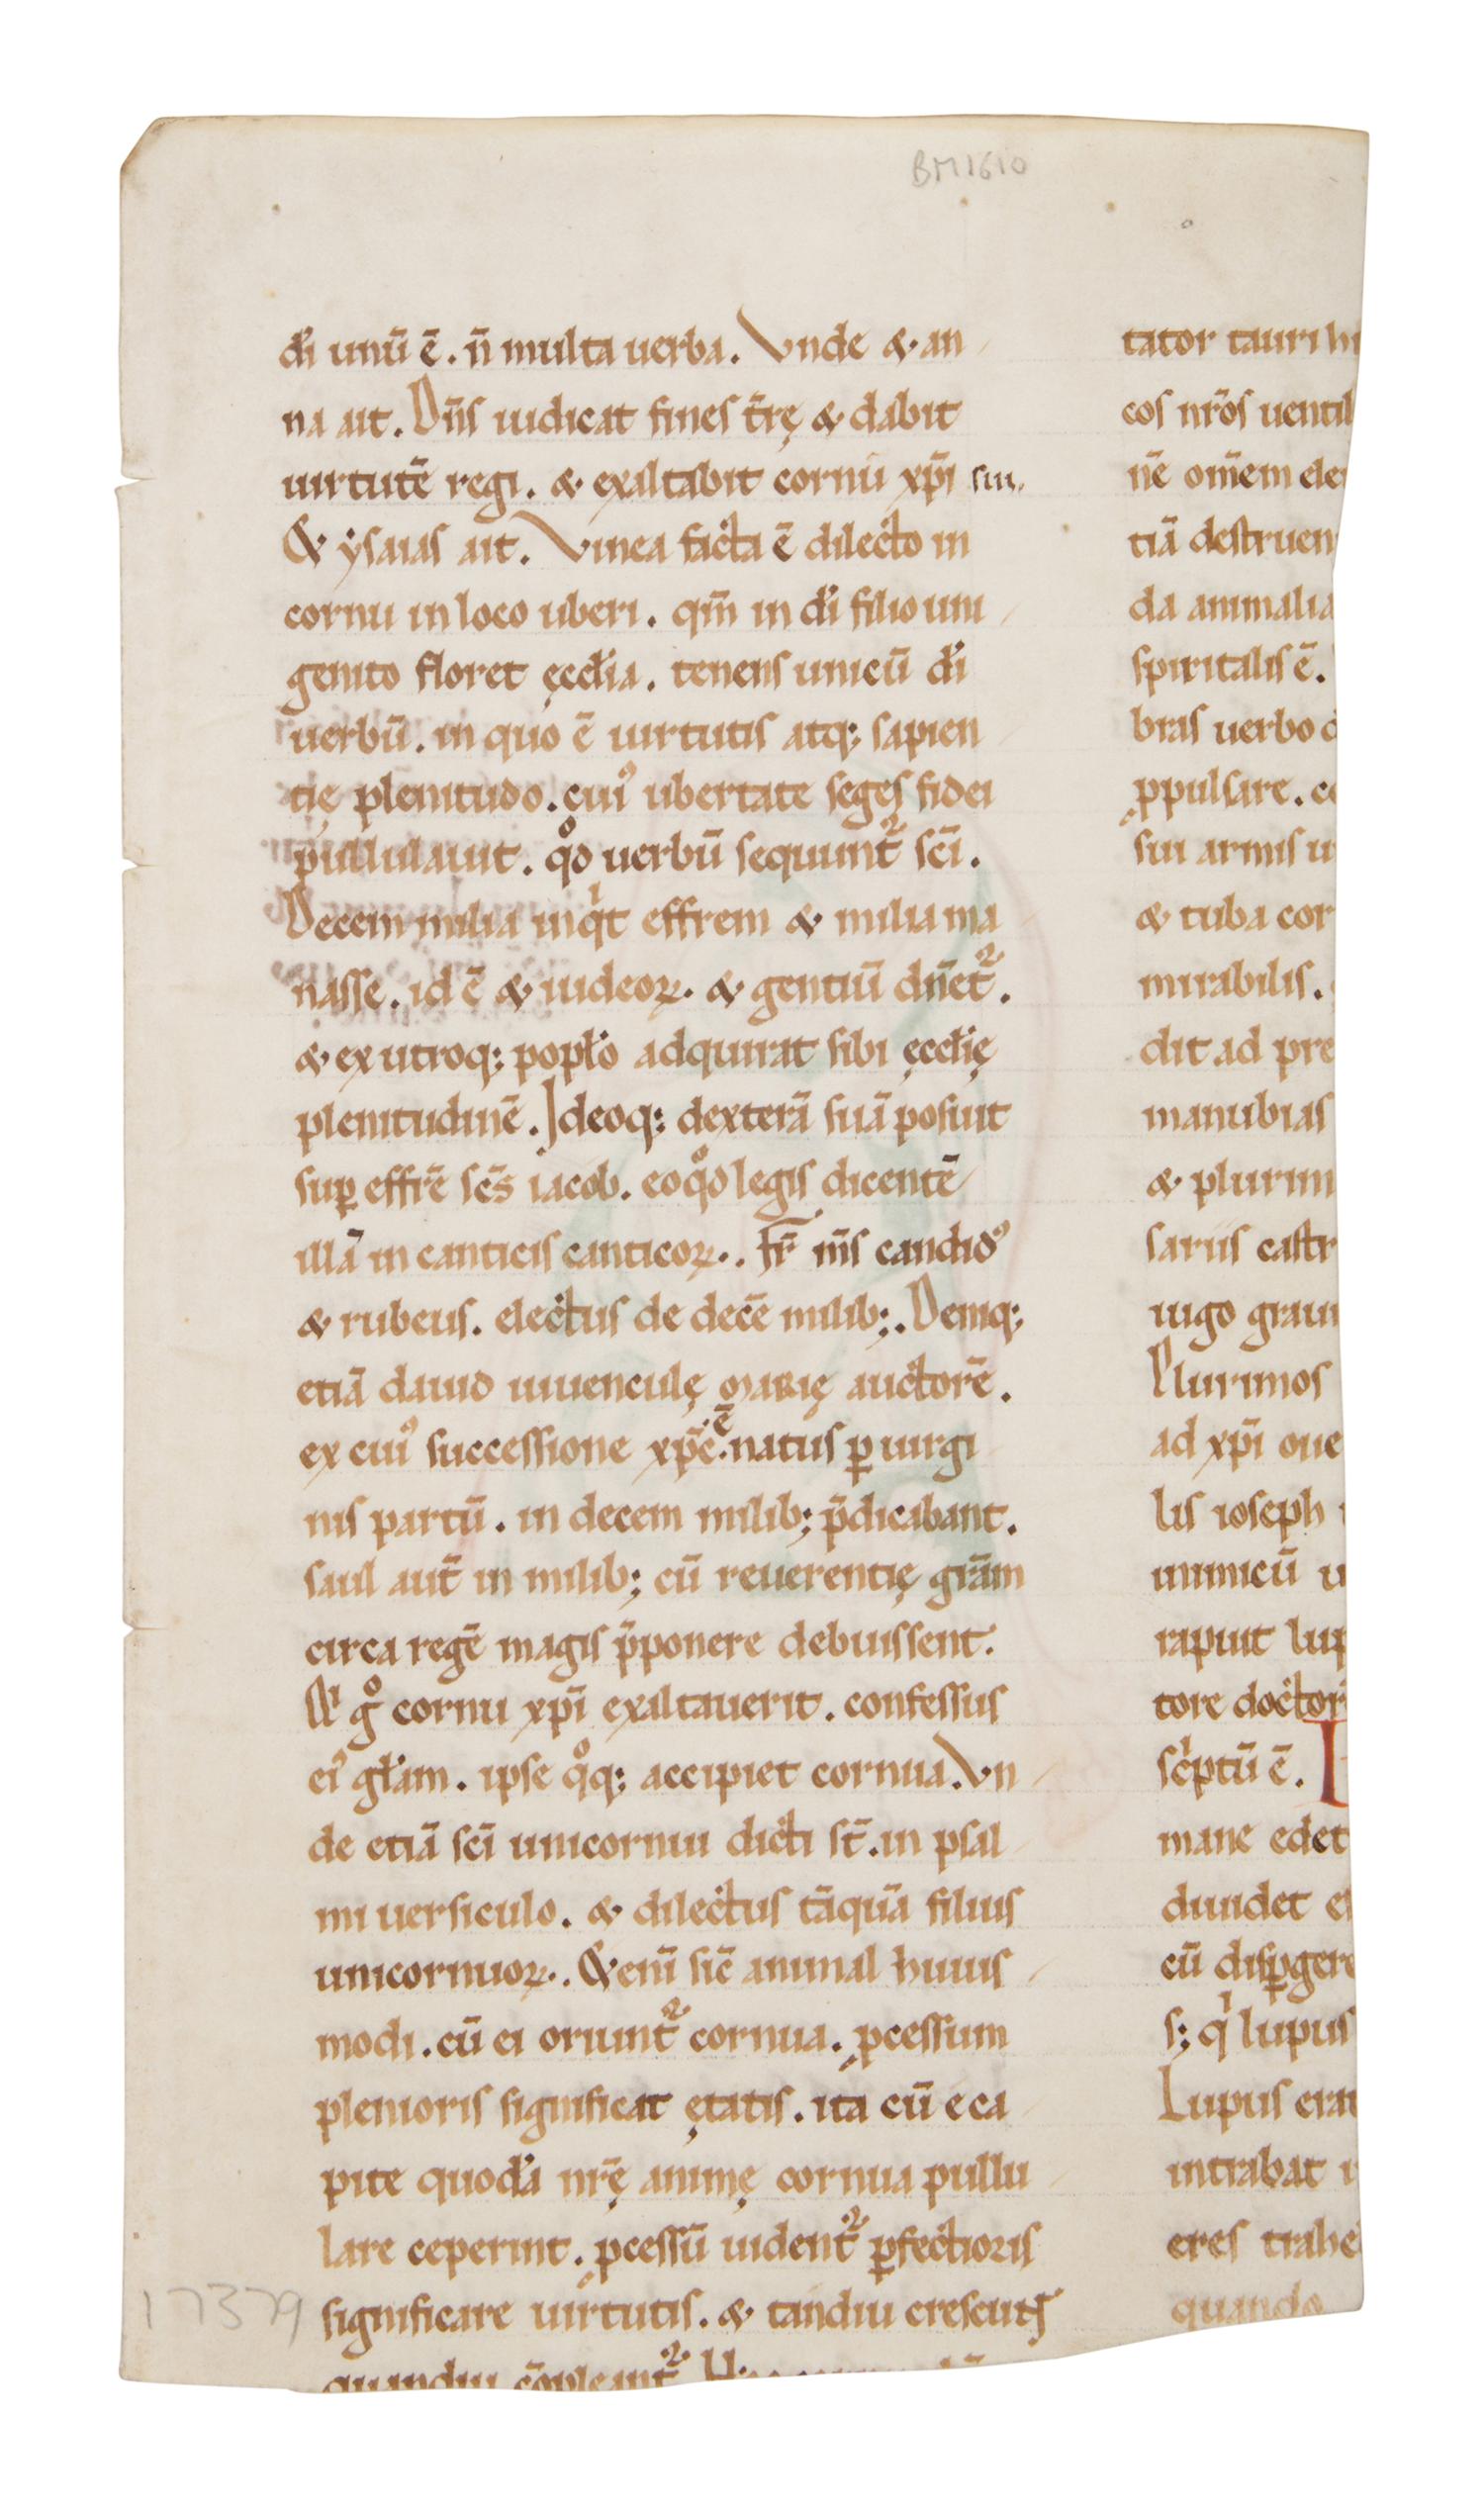 BM1610
dı̄ unū ē. n̄ multa uerba. Vnde & an
na ait. Dn̄s iudicat fines t̄rę & dabit
uirtutē regi. & exaltabit cornu xp̄i sui.
& ẏsaias ait. Vinea facta ē dilecto in
cornu in loco uberi. qm̄ in dı̄ filio uni
genito floret ęccłia. tenens unicū dı̄
uerbū. in quo ē uirtutis atq; sapien
tię plenitudo. cuiꝰ ubertate seges fidei
pullulauit. qͦd uerbū sequunt̄ᷣ sc̄i.
Decem milia inqͥt effrem & milia ma
nasse. id ē & iudeoꝝ. & gentiū dn̄et̄ᷣ.
& ex utroq; popło adquirat sibi ęccłię
plenitudinē. Ideoq; dexterā suā posuit
suꝑ effrē sc̄s iacob. eo qͦd legis dicentē
illā in canticis canticoꝝ. Fr̄ m̄s candidꝰ
& rubeus. electus de decē milib;. Deniq;
etiā dauid iuuenculę marię auctorē.
ex cuiꝰ successione xp̄c ē natus ꝑ uirgi
nis partū. in decem milib; p̄dicabant.
saul aut̄ in milib; cū reuerentię grām
circa regē magis p̄ponere debuissent.
Qͥ gͦ cornu xp̄i exaltauerit. confessus
eiꝰ głam. ipse qͦq; accipiet cornua. Vn
de etiā sc̄i unicornui dicti st̄. in psal
mi uersiculo. & dilectus tāquā filius
unicornuoꝝ. &enī sic̄ animal huius
modi. cū ei oriunt̄ᷣ cornua. ꝓcessum
plenioris significat ętatis. ita cū e ca
pite quodā nr̄ę animę cornua pullu
lare ceperint. ꝓcessū uident̄ᷣ ꝑfectioris
significare uirtutis. & tandiu crescunt
quandiu cōpleant̄ᷣ
tator tauri hi
cos nr̄os uentil
nē om̄em ele
tiā destruen
da animalia
spiritalis ē.
bras uerbo d
ꝓpulsare. c
sui armis u
& tuba cor
mirabilis.
dit ad pre
manubias
& plurim
sariis castr
iugo graui
Plurimos
ad xp̄i oue
lis ioseph
inimicū u
rapuit lup
tore doctor
scͥptū ē.
mane edet
diuidet e
cū disꝑgere
s; qͥ lupus
Lupus erat
intrabat i
eres trahe
quando
17379